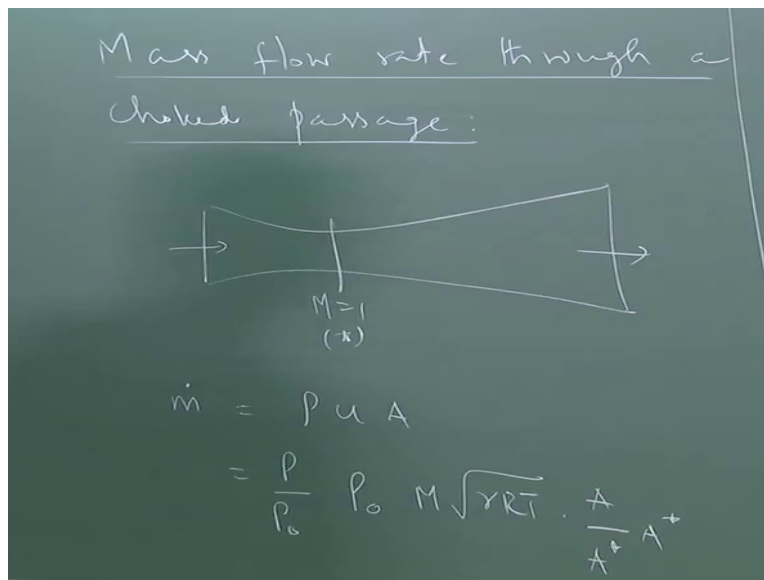 Mass flow rate through a
choked passage:
M=1
(*)
ṁ = ρ u A
= ρ/ρ₀ ρ₀ M √γRT . A/A* A*